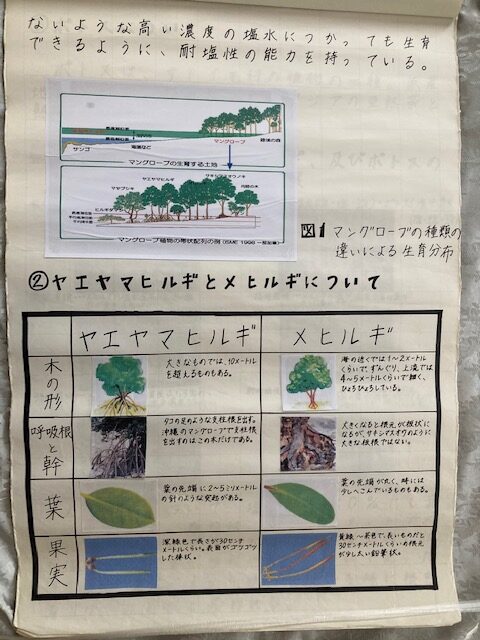 ないような高い濃度の塩水につかっても生育
できるように、耐塩性の能力を持っている。
マングローブ
後背の森
サンゴ
マングローブの生育する土地
サキシマスオウノキ
ヤエヤマヒルギ
マヤプシキ
ヒルギダマシ
マングローブ植物の帯状配列の例 (ISME 1998
図1 マングローブの種類の
違いによる生育分布
②ヤエヤマヒルギとメヒルギについて
ヤエヤマヒルギ
メヒルギ
木の形
大きなものでは、10メートル
を超えるものもある。
海の近くでは1~2メートル
くらいで、ずんぐり、上流では
4~5メートルくらいで細く、
ひょろひょろしている。
呼吸根と幹
タコの足のような支柱根を出す。
沖縄のマングローブで支柱根
を出すのはこの木だけである。
大きくなると根元が板状に
なるが、サキシマスオウのように
大きな板根ではない。
葉
葉の先端に2~5ミリメートル
の針のような突起がある。
葉の先端が丸く、時には
少しへこんでいるものもある。
果実
深緑色で長さが30センチ
メートルくらい。表面がゴツゴツ
した棒状。
黄緑~茶色で、長いものだと
30センチメートルくらいの根元
が少し太い鉛筆状。